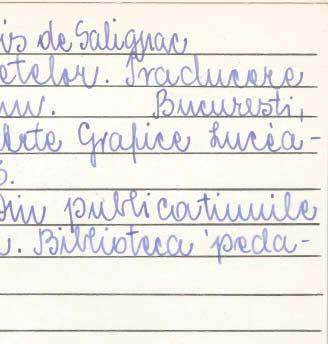 is de Salignac
etelor. Traducere
. Bucuresti,
Arte Grafice Lucéa-
.
Din publicatiunile
. Biblioteca peda-